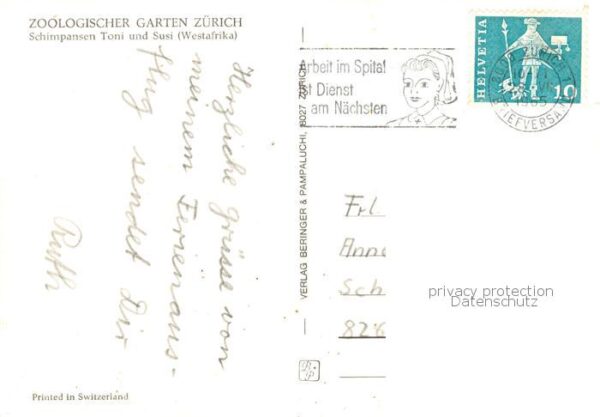 ZOOLOGISCHER GARTEN ZÜRICH
Schimpansen Toni und Susi (Westafrika)
Herzliche Grüsse von
meinem Ferienaus-
flug sendet Dir
Ruth
Printed in Switzerland
VERLAG BERINGER & PAMPALUCHI, 8027 ZÜRICH
Arbeit im Spital
ist Dienst
am Nächsten
HELVETIA
10
ZÜRICH
BRIEFVERSAND
Frl.
Anne
Sch
826
privacy protection
Datenschutz